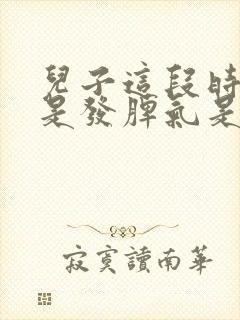 兒子這段時
是發脾氣是
寂寞讀南華